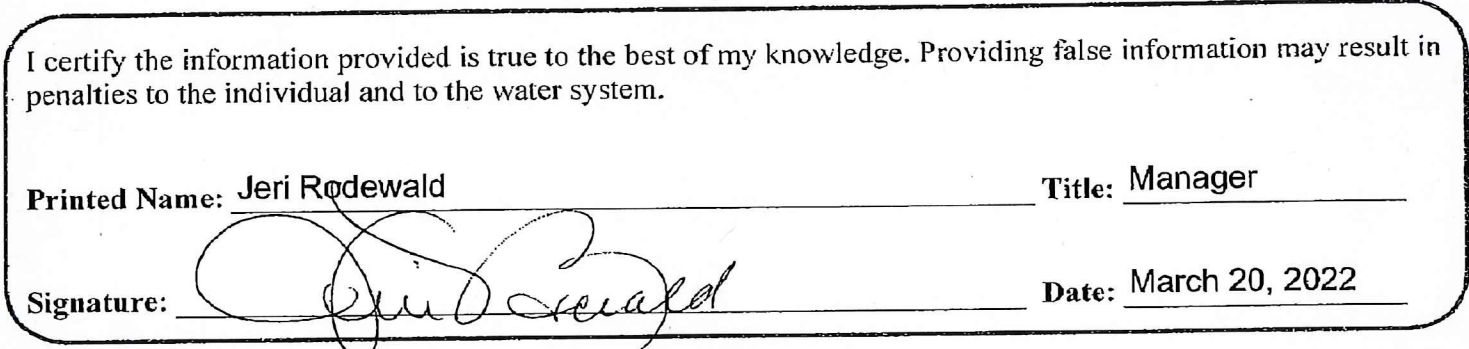 I certify the information provided is true to the best of my knowledge. Providing false information may result in
penalties to the individual and to the water system.
Printed Name: Jeri Rodewald Title: Manager
Signature: Jeri Rodewald Date: March 20, 2022